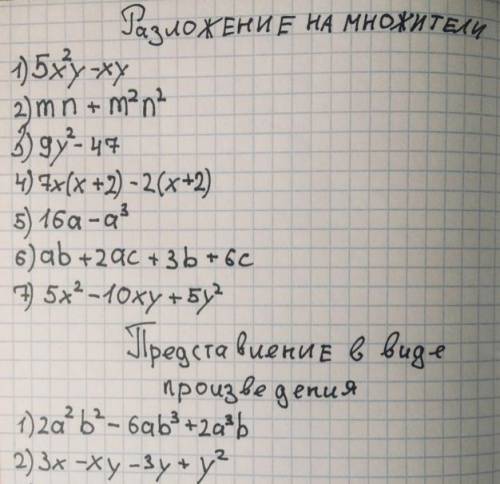 РАЗЛОЖЕНИЕ НА МНОЖИТЕЛИ
1) 5x²y - xy
2) mn + m²n²
3) 9y² - 47
4) 7x(x+2) - 2(x+2)
5) 16a - a³
6) ab + 2ac + 3b + 6c
7) 5x² - 10xy + 5y²
ПРЕДСТАВЛЕНИЕ в виде
произведения
1) 2a²b² - 6ab³ + 2a³b
2) 3x - xy - 3y + y²